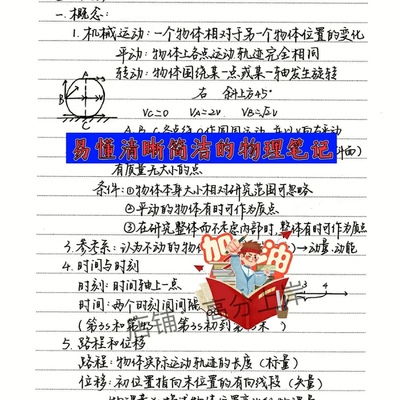 一.概念:
1.机械运动:一个物体相对于另一个物体位置的变化
平动:物体上各点运动轨迹完全相同
转动:物体围绕某一点或某一轴发生旋转
A
B
C
右 斜上方45°
Vc=0 VA=2v VB=√2v
易懂清晰简洁的物理笔记
有质量无大小的点
条件:①物体本身大小相对研究范围可忽略
②平动的物体有时可作为质点
③在研究整体而不考虑内部时,整体有时可作为质点
3.参考系:认为不动的物体 →动量.动能
加油
4.时间与时刻
时刻:时间轴上一点
时间:两个时刻间间隔
3 4
(第3s和第 第3s初到第 末)
店铺:高分工库
5.路程和位移
路程:物体实际运动轨迹的长度(标量)
位移:初位置指向末位置的有向线段(矢量)